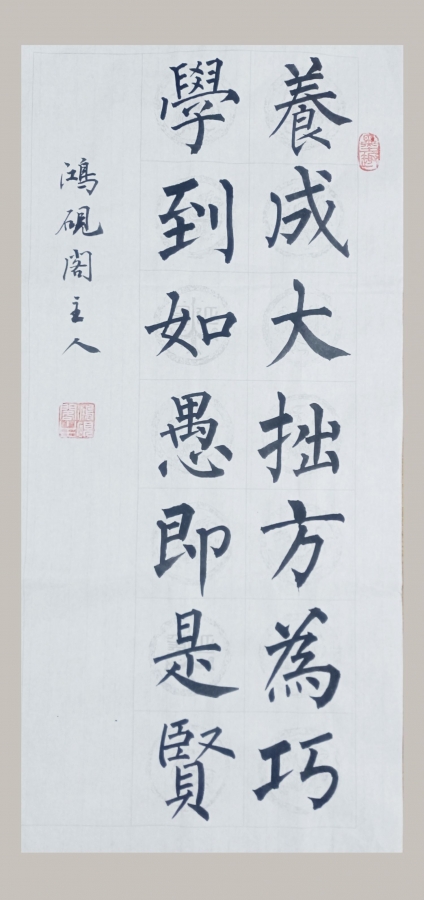 養成大拙方為巧
學到如愚即是賢
鴻硯閣主人